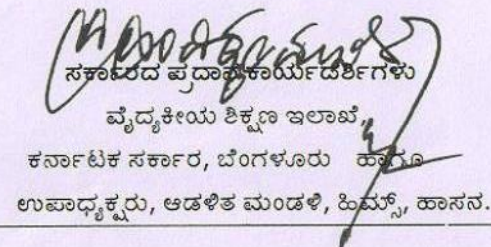 ಸರ್ಕಾರದ ಪ್ರದಾನ ಕಾರ್ಯದರ್ಶಿಗಳು
ವೈದ್ಯಕೀಯ ಶಿಕ್ಷಣ ಇಲಾಖೆ,
ಕರ್ನಾಟಕ ಸರ್ಕಾರ, ಬೆಂಗಳೂರು ಹಾಗೂ
ಉಪಾಧ್ಯಕ್ಷರು, ಆಡಳಿತ ಮಂಡಳಿ, ಹಿಮ್ಸ್, ಹಾಸನ.